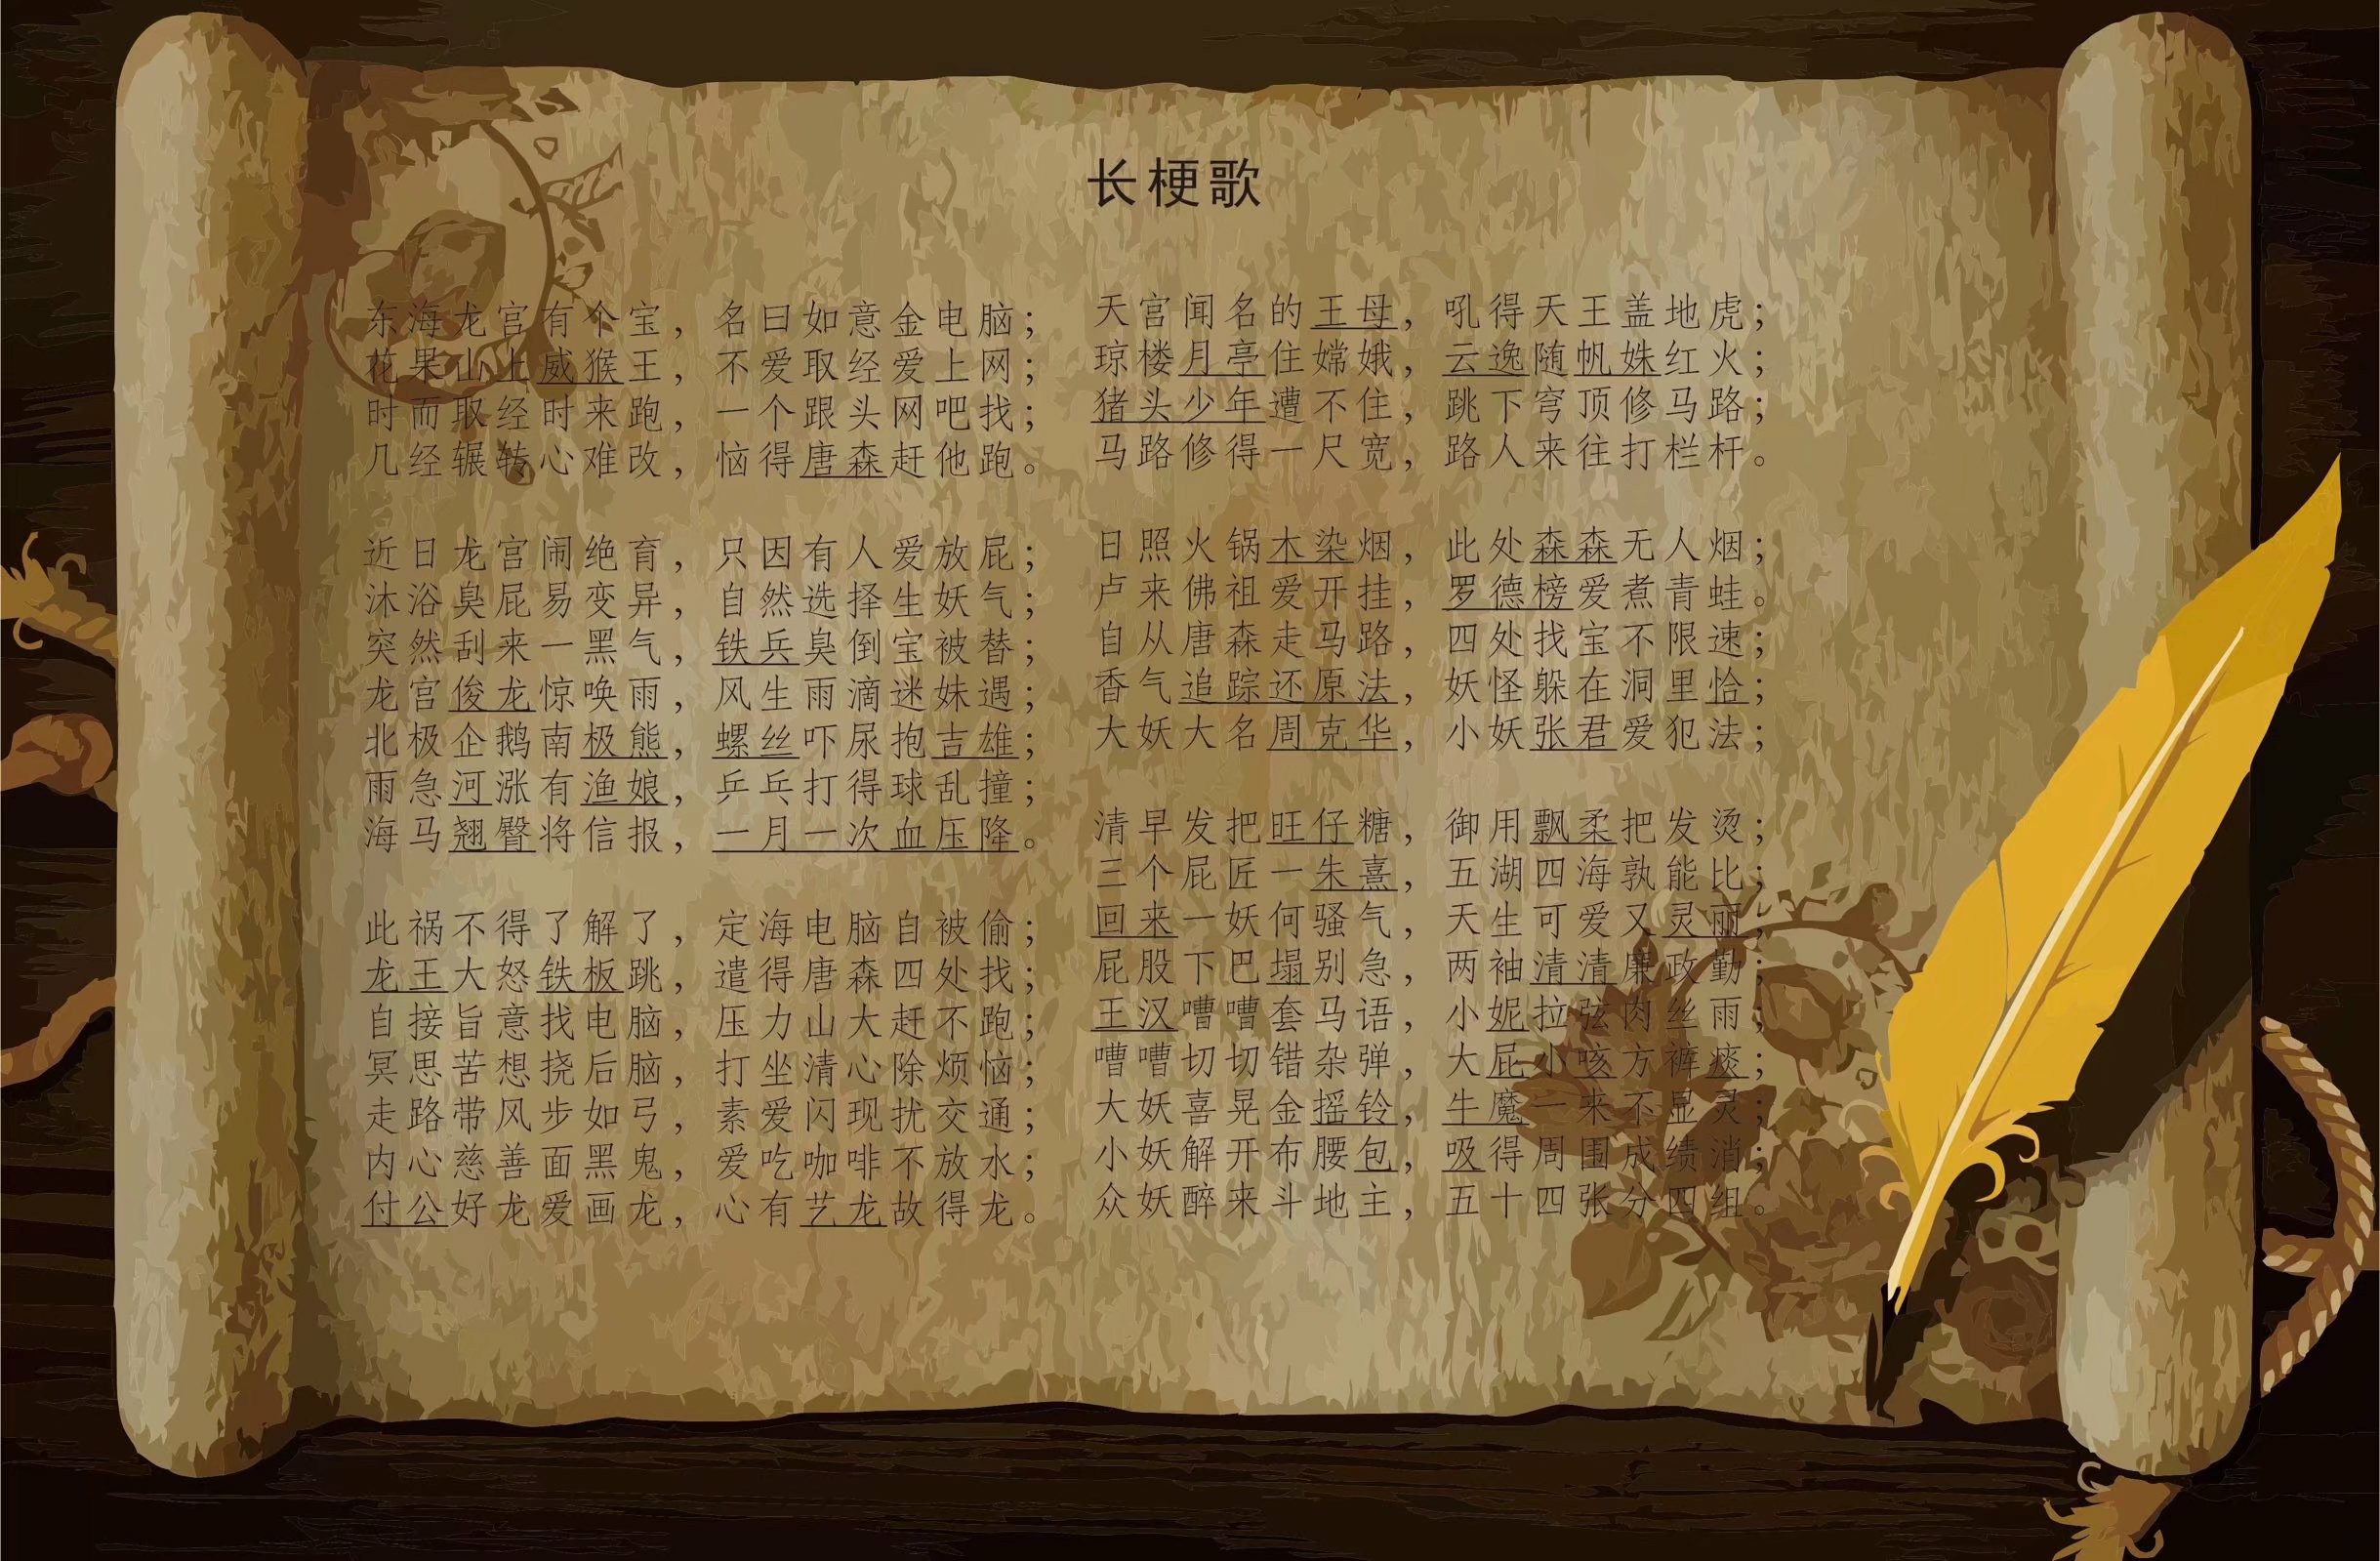 长梗歌
东海龙宫有个宝，名曰如意金电脑；
花果山上威猴王，不爱取经爱上网；
时而取经时来跑，一个跟头网吧找；
几经辗转心难改，恼得唐森赶他跑。
近日龙宫闹绝育，只因有人爱放屁；
沐浴臭屁易变异，自然选择生妖气；
突然刮来一黑气，铁兵臭倒宝被替；
龙宫俊龙惊唤雨，风生雨滴迷妹遇；
北极企鹅南极熊，螺丝吓尿抱吉雄；
雨急河涨有渔娘，乒乓打得球乱撞；
海马翘臀将信报，一月一次血压降。
此祸不得了解了，定海电脑自被偷；
龙王大怒铁板跳，遣得唐森四处找；
自接旨意找电脑，压力山大赶不跑；
冥思苦想挠后脑，打坐清心除烦恼；
走路带风步如弓，素爱闪现扰交通；
内心慈善面黑鬼，爱吃咖啡不放水；
付公好龙爱画龙，心有艺龙故得龙。
天宫闻名的王母，吼得天王盖地虎；
琼楼月亭住嫦娥，云逸随帆姝红火；
猪头少年遭不住，跳下穹顶修马路；
马路修得一尺宽，路人来往打栏杆。
日照火锅木染烟，此处森森无人烟；
卢来佛祖爱开挂，罗德榜爱煮青蛙。
自从唐森走马路，四处找宝不限速；
香气追踪还原法，妖怪躲在洞里恰；
大妖大名周克华，小妖张君爱犯法；
清早发把旺仔糖，御用飘柔把发烫；
三个屁匠一朱熹，五湖四海孰能比；
回来一妖何骚气，天生可爱又灵丽；
屁股下巴塌别急，两袖清清廉政勤；
王汉嘈嘈套马语，小妮拉弦肉丝雨；
嘈嘈切切错杂弹，大屁小咳方裤痰；
大妖喜晃金摇铃，牛魔一来不显灵；
小妖解开布腰包，吸得周围成绩消；
众妖醉来斗地主，五十四张分四组。